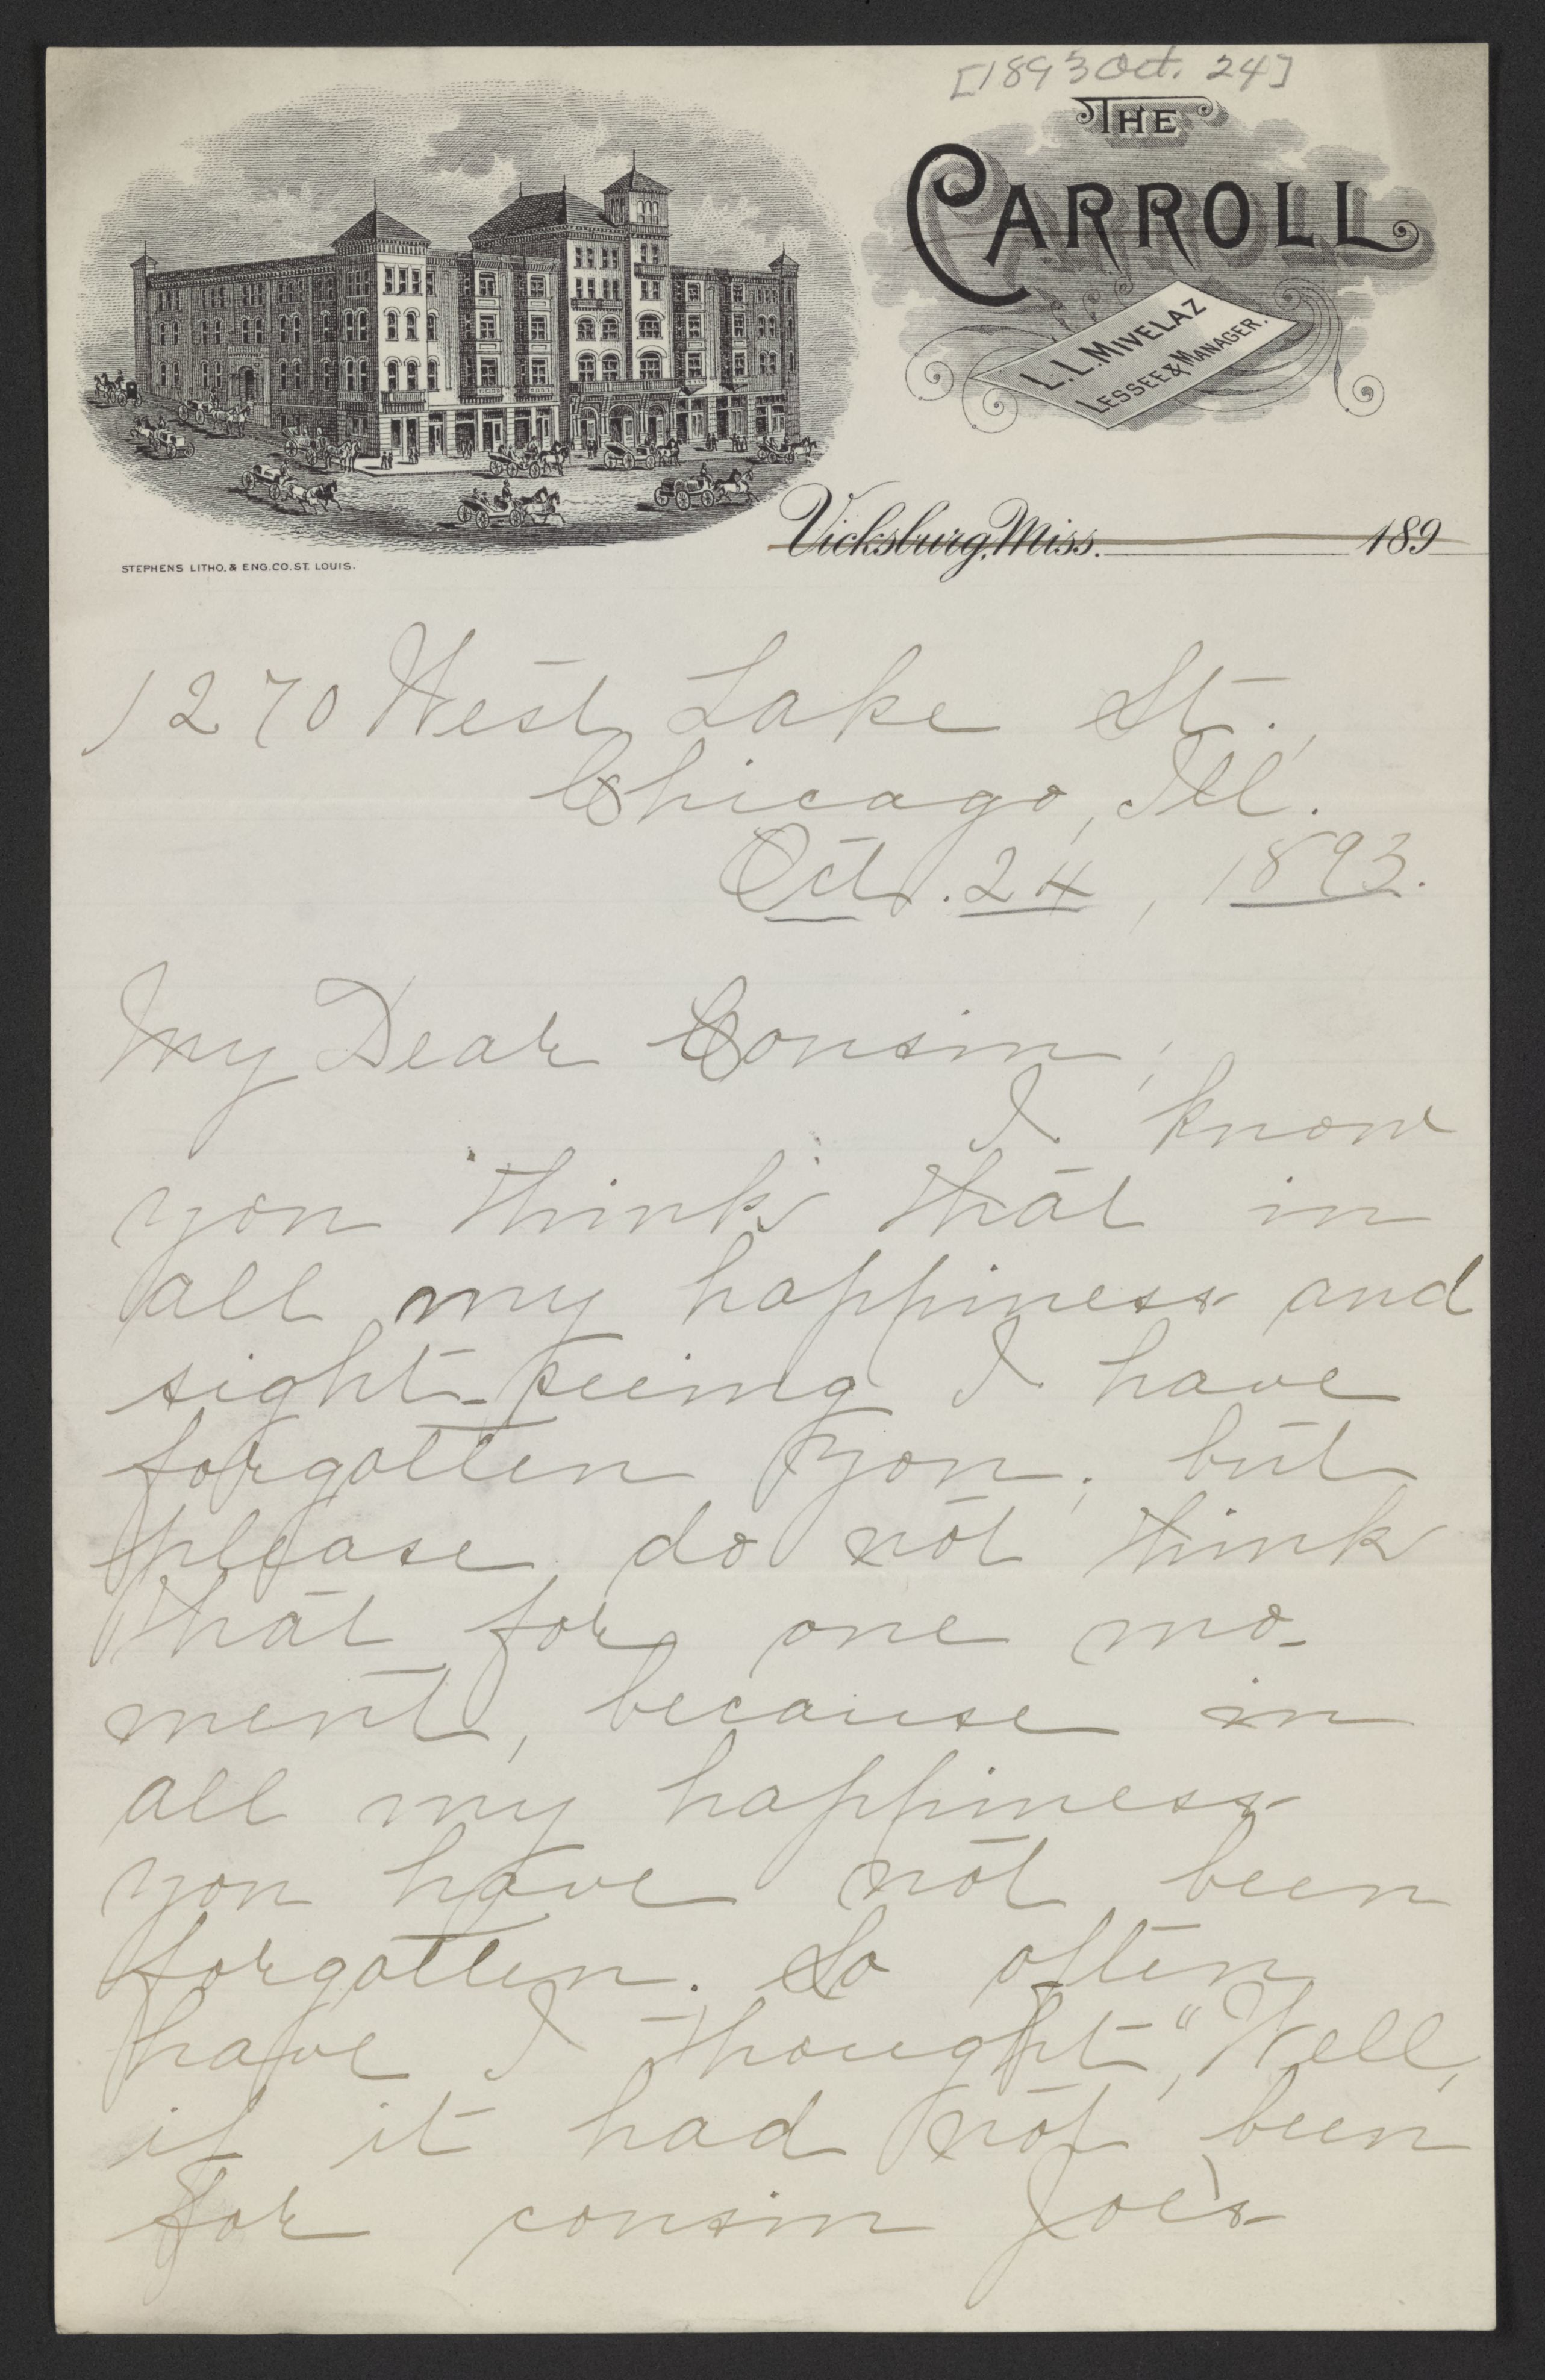 [1893 Oct. 24]
THE
CARROLL
L. L. MIVELAZ
LESSEE & MANAGER.
Vicksburg, Miss. 189
STEPHENS LITHO. & ENG. CO. ST. LOUIS.
1270 West Lake St.,
Chicago, Ill.
Oct. 24, 1893.
My Dear Cousin;
I know
you think that in
all my happiness and
sight-seeing I have
forgotten you; but
please do not think
that for one mo-
ment, because in
all my happiness
you have not been
forgotten. So often
have I thought, "Well,
if it had not been
for cousin Joe's